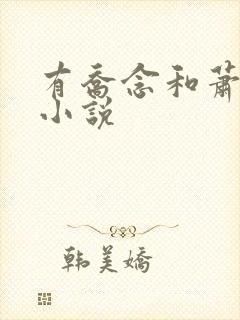 有喬念和蕭
小說
韩美嬌